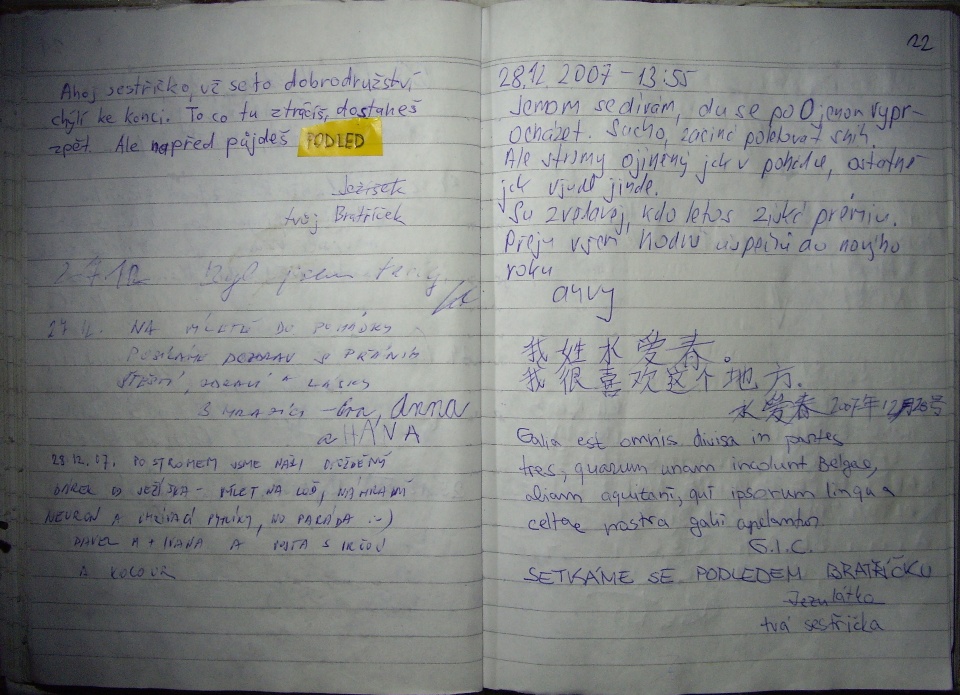 Ahoj sestřičko, už se to dobrodružství
chýlí ke konci. To co tu ztratíš, dostaneš
zpět. Ale napřed půjdeš PODLED
Ježíšek
tvůj Bratříček
27.12. Byl jsem tady
NA VÝLETĚ DO
POSÍLÁME POZDRAV S PŘÁNÍM
ŠTĚSTÍ, ZDRAVÍ A LÁSKY
Eva, Anna
a HANA
28.12.07. POD STROMEM JSME NAŠLI
DÁREK OD JEŽÍŠKA - VÝLET NA
NEURON A PYTLÍKY, NO PARÁDA :-)
PAVEL M + IVANA A
A KOCOUR
22
28.12. 2007 - 13:55
Jenom se dívám, du se po O jenom vypr-
ocházet. Sucho, začíná poletovat sníh.
Ale stromy ojíněný jak v pohádce, ostatně
jak všude jinde.
Su zvědavej, kdo letos získá prémiu.
Přeju všem hodně úspěchů do novýho
roku
我姓水爱春。
我很喜欢这个地方.
水爱春 2007年12月28号
Galia est omnis divisa in partes
tres, quarum unam incolunt Belgae,
aliam aquitani, qui ipsorum lingua
celtae nostra galii apelantor.
G.I.C.
SETKÁME SE PODLEDEM BRATŘÍČKU
Jezulátko
tvá sestřička